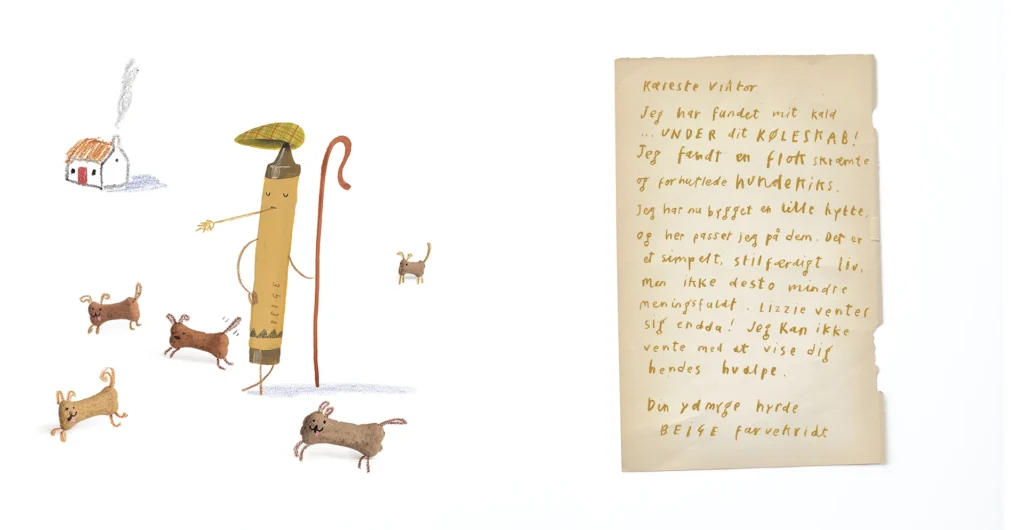 BEIGE
Kæreste Viktor
Jeg har fundet mit kald
... UNDER dit KØLESKAB!
Jeg fandt en flok skræmte
og forhutlede hundekiks.
Jeg har nu bygget en lille hytte,
og her passer jeg på dem. Det er
et simpelt, stilfærdigt liv,
men ikke desto mindre
meningsfuldt. Lizzie venter
sig endda! Jeg kan ikke
vente med at vise dig
hendes hvalpe.
Din ydmyge hyrde
BEIGE farvekridt